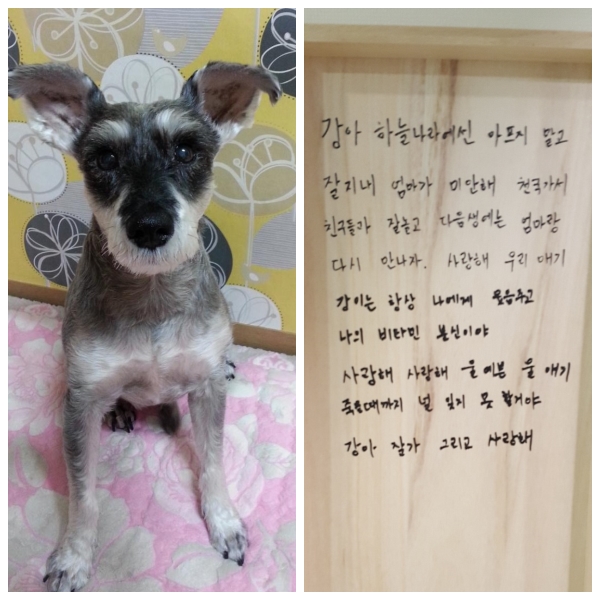 강아 하늘나라에선 아프지 말고
잘지내 엄마가 미안해 천국가서
친구들과 잘놀고 다음생에는 엄마랑
다시 만나자. 사랑해 우리 애기
강이는 항상 나에게 웃음주고
나의 비타민 본신이야
사랑해 사랑해 울 예쁜 울 애기
죽을때까지 널 잊지 못 할거야
강아 잘가 그리고 사랑해